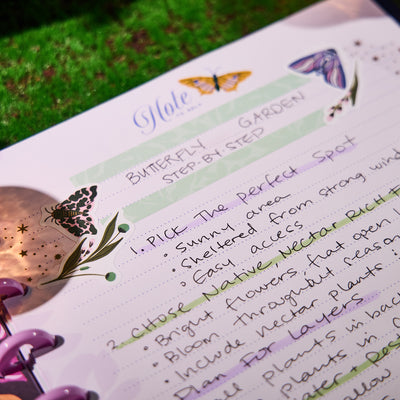 Note
BUTTERFLY GARDEN
STEP-BY-STEP
1. PICK The perfect Spot
• Sunny area
• Sheltered from strong wind
• Easy access
2. CHOSE Native, Nectar Rich F
• Bright flowers, flat open
• Bloom throughout season
• Include nectar plants :
Plan For Layers
plants in back